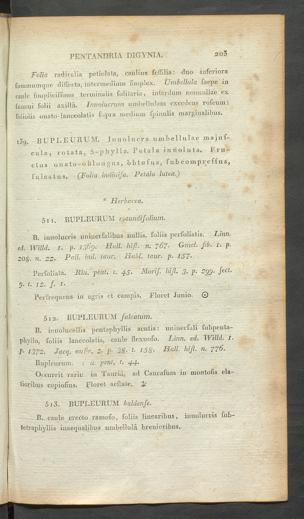 PENTANDRIA DIGYNIA. 203
Folia radicalia petiolata, caulina sessilia: duo inferiora
summumque dissecta, intermedium simplex. Umbellula saepe in
caule simplicissimo terminalis solitaria, interdum nonnullae ex
summi folii axilla. Involucrum umbellulam excedens roseum:
foliolis ovato-lanceolatis supra medium spinulis marginalibus.
139. BUPLEURUM. Involucra umbellulae majus-
cula, rotata, 5-phylla. Petala involuta. Fru-
ctus ovato-oblongus, obtusus, subcompressus,
sulcatus. (Folia indivisa. Petala lutea.)
* Herbacea.
511. BUPLEURUM rotundifolium.
B. involucris universalibus nullis, foliis perfoliatis. Linn.
ed. Willd. 1. p. 1369. Hall. hist. n. 767. Gmel. sib. 1. p.
208. n. 22. Pall. ind. taur. Habl. taur. p. 157.
Perfoliata. Riv. pent. t. 45. Moris. hist. 3. p. 299. sect.
9. t. 12. f. 1.
Perfrequens in agris et campis. Floret Junio. ☉
512. BUPLEURUM falcatum.
B. involucellis pentaphyllis acutis: universali subpenta-
phyllo, foliis lanceolatis, caule flexuoso. Linn. ed. Willd. 1.
p. 1372. Jacq. austr. 2. p. 28. t. 158. Hall. hist. n. 776.
Bupleurum. pent. t. 44.
Occurrit rarius in Tauria, ad Caucasum in montosis ela-
tioribus copiosius. Floret aestate. ♃
513. BUPLEURUM baldense.
B. caule erecto ramoso, foliis linearibus, involucris sub-
tetraphyllis inaequalibus umbellula brevioribus.